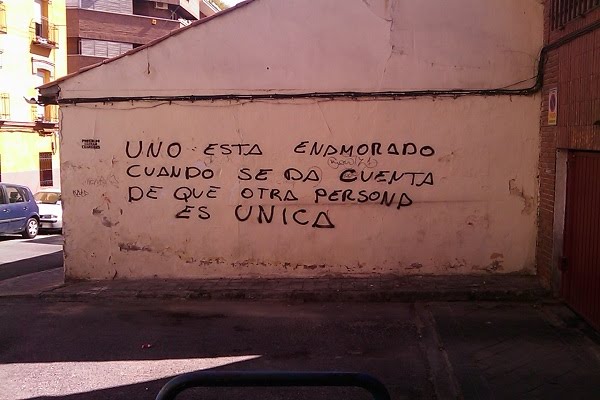 UNO ESTA ENAMORADO
CUANDO SE DA CUENTA
DE QUE OTRA PERSONA
ES UNICA